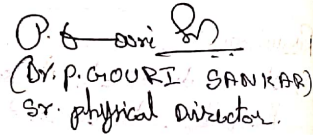 (Dr. P. GOURI SANKAR)
Sr. physical Director.